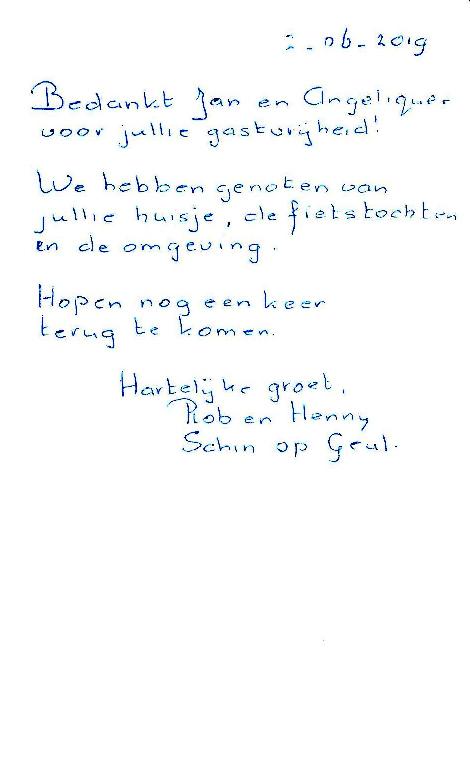 2-06-2019
Bedankt Jan en Angelique
voor jullie gastvrijheid!
We hebben genoten van
jullie huisje, de fietstochten
en de omgeving.
Hopen nog een keer
terug te komen.
Hartelijke groet,
Rob en Henny
Schin op Geul.